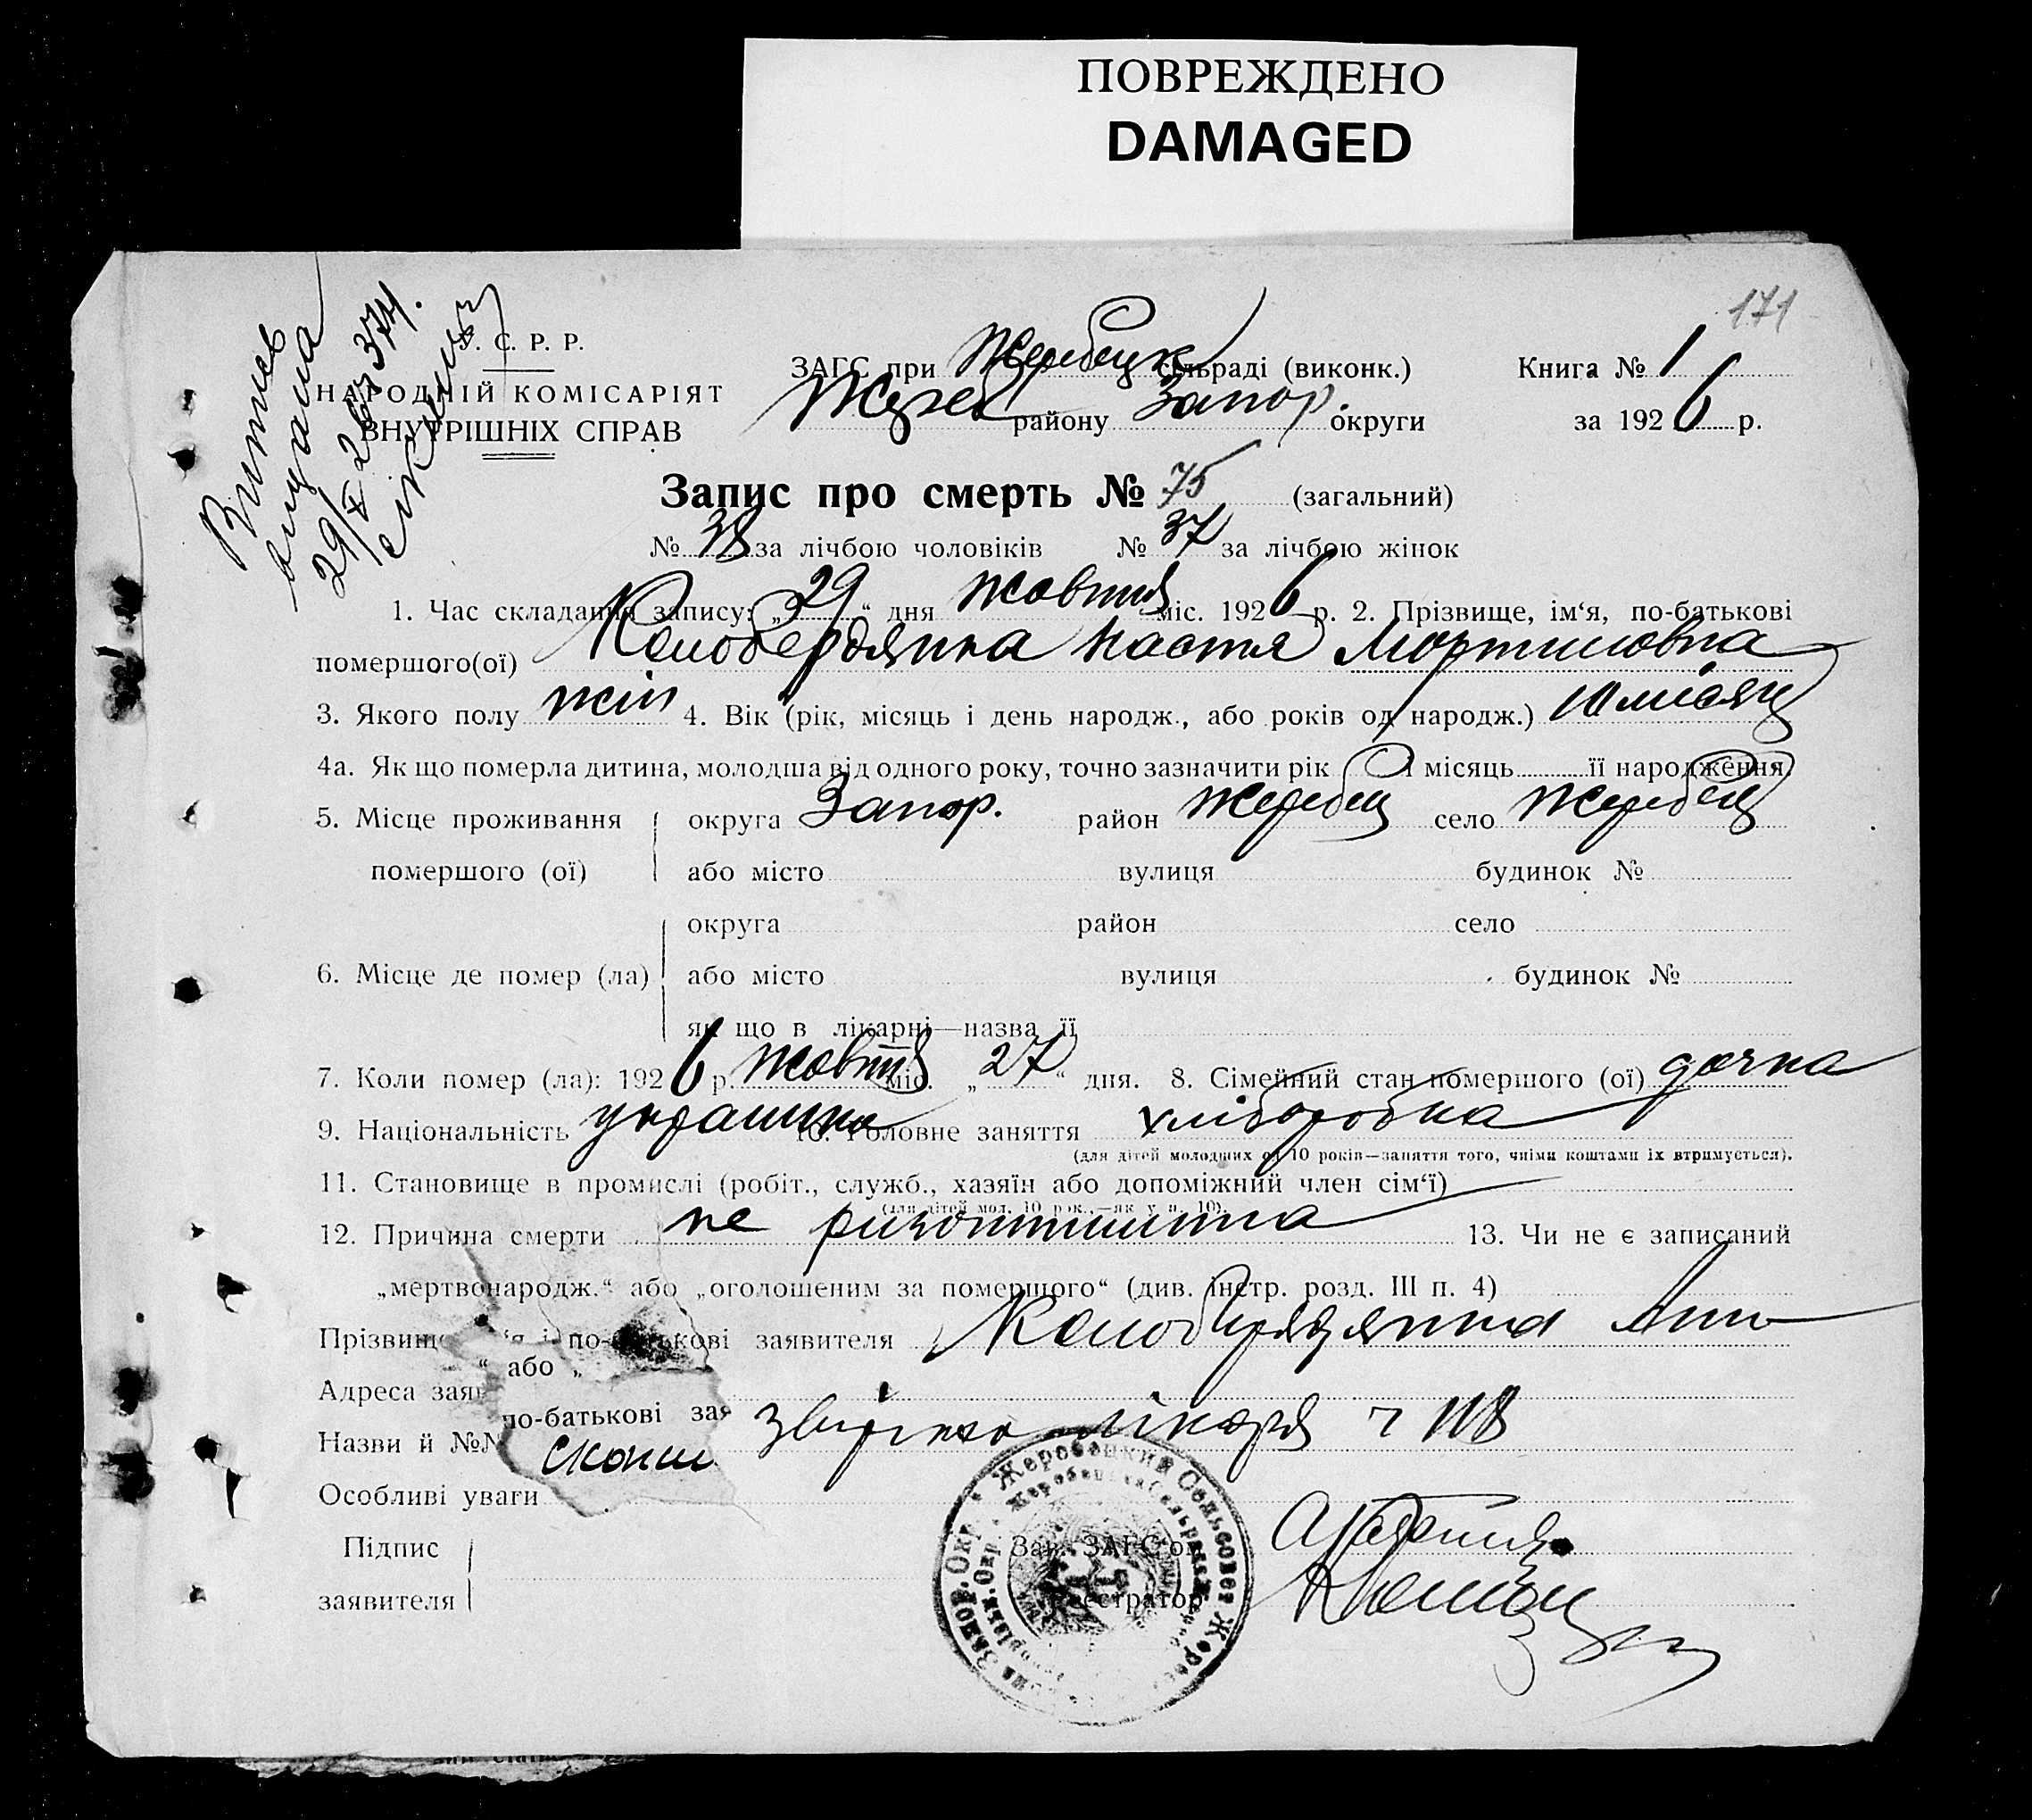 ПОВРЕЖДЕНО
DAMAGED
171
У. С. Р. Р.
НАРОДНІЙ КОМІСАРІЯТ
ВНУТРІШНІХ СПРАВ
Витяг
видана
29/X 26 р 374.
ЗАГС при Жеребецк сільраді (виконк.) Книга № 1
Жереб району Запор. округи за 1926 р.
Запис про смерть № 75 (загальний)
№ 38 за лічбою чоловіків № 37 за лічбою жінок
1. Час складання запису: „29“ дня жовтня міс. 1926 р. 2. Прізвище, ім‘я, по-батькові
помершого(ої) Колобердянка Настя Мортиновна
3. Якого полу жін 4. Вік (рік, місяць і день народж., або років од народж.) 10 місяц
4а. Як що померла дитина, молодша від одного року, точно зазначити рік і місяць її народження.
5. Місце проживання округа Запор. район Жеребец село Жеребец
помершого (ої) або місто вулиця будинок №
округа район село
6. Місце де помер (ла) або місто вулиця будинок №
як що в лікарні—назва її
7. Коли помер (ла): 1926 р. жовтня міс. „27“ дня. 8. Сімейний стан помершого (ої) дочка
9. Національність украинка 10. Головне заняття хліборобка
(для дітей молодших од 10 років—заняття того, чиїми коштами їх втримується).
11. Становище в промислі (робіт., служб., хазяїн або допоміжний член сім‘ї)
(для дітей мол. 10 рок.,—як у п. 10).
12. Причина смерти не 13. Чи не є записаний
„мертвонародж.“ або „оголошеним за помершого“ (див. інстр. розд. III п. 4)
Прізвище по-батькові заявителя
“ або „
Адреса
по-батькові
Назви й лікаря
Особливі уваги
Підпис Зав. ЗАГС‘ом
заявителя Реєстратор
Жеребецкий Сельсовет